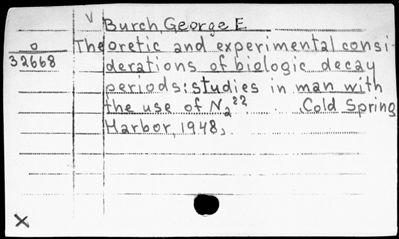 V
Burch, George E.
o Theoretic and experimental consi-
32668 derations of biologic decay
periods: studies in man with
the use of N₂²² (Cold Spring
Harbor, 1948,
X